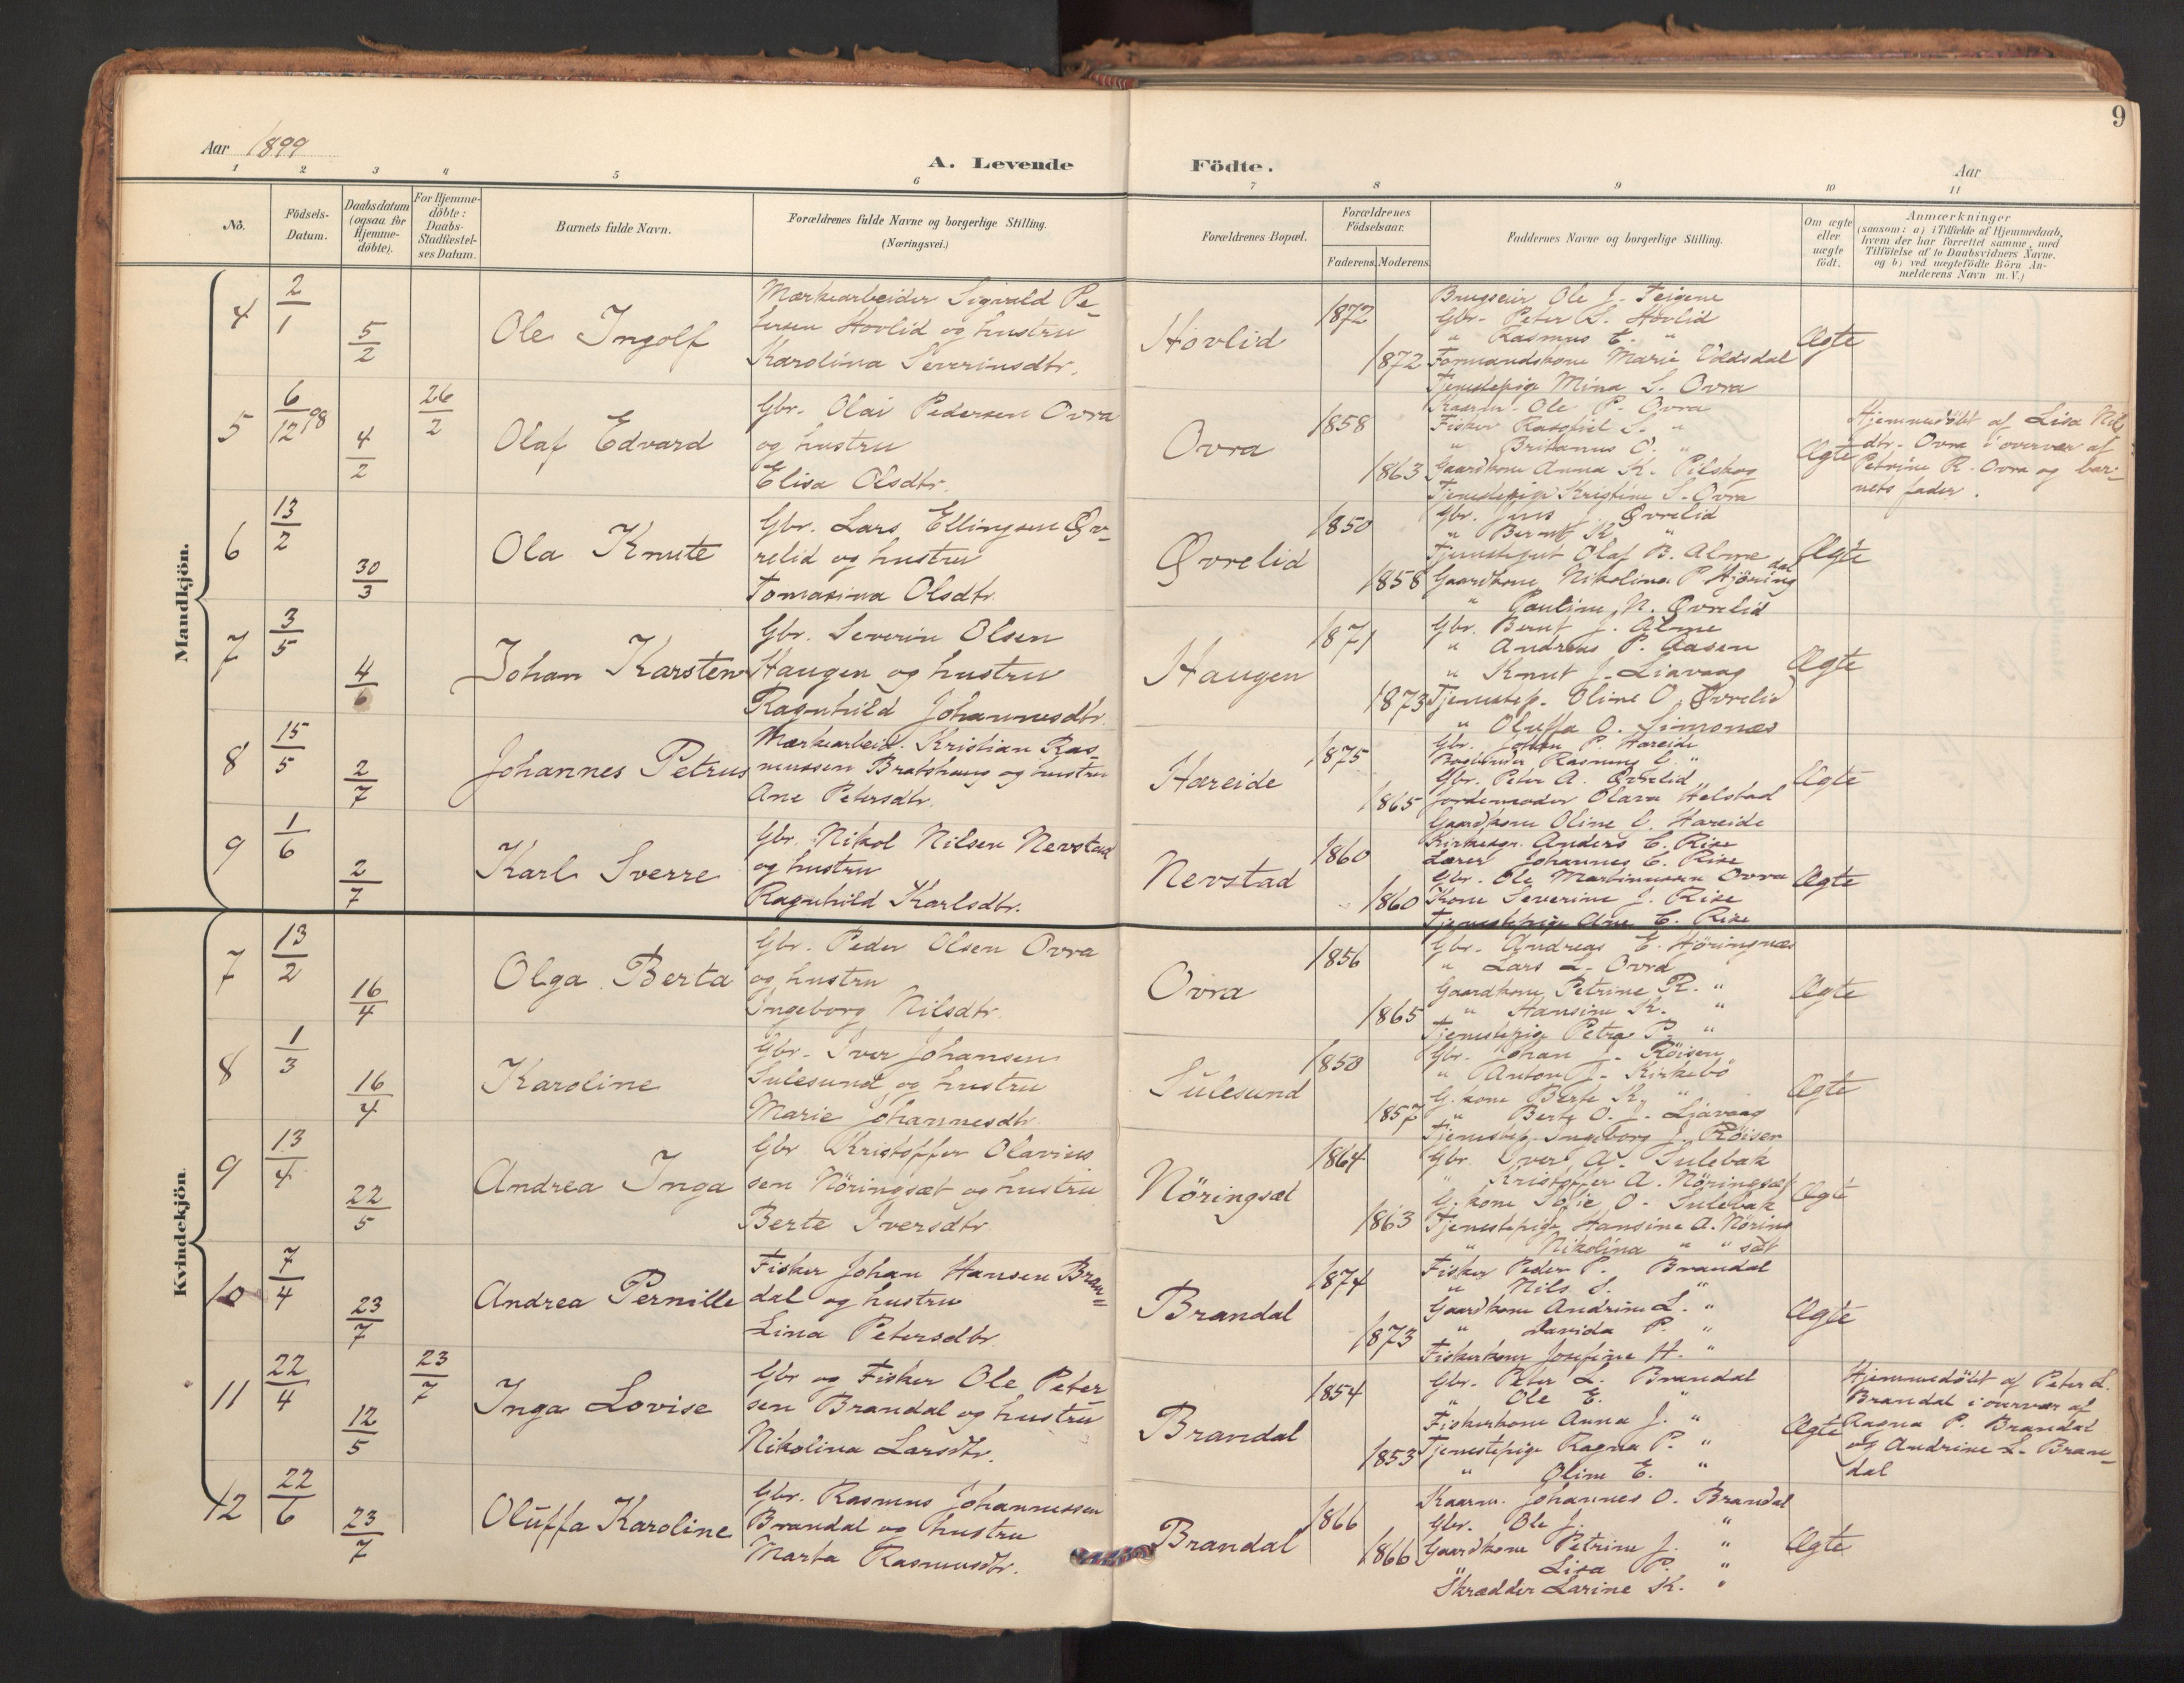 9
Aar 1899
A. Levende Födte.
Aar
1 2 3 4 5 6 7 8 9 10 11
No.
Födsels-Datum.
Daabsdatum (ogsaa for Hjemmedöbte).
For Hjemmedöbte: Daabs-Stadfæstelses Datum.
Barnets fulde Navn.
Forældrenes fulde Navne og borgerlige Stilling. (Næringsvei.)
Forældrenes Bopæl.
Forældrenes Födselsaar.
Faderens. Moderens.
Faddernes Navne og borgerlige Stilling.
Om ægte eller uægte födt.
Anmærkninger
(saasom: a) i Tilfælde af Hjemmedaab, hvem der har forrettet samme, med Tilföielse af to Daabsvidners Navne. og b) ved uægtefödte Börn Anmelderens Navn m. V.)
Mandkjön.
4 2/1 5/2 Ole Ingolf
Markearbeider Sigvald Pe-
tersen Hovlid og hustru
Karolina Severinsdtr.
Hovlid 1872 1872
Brugseier Ole J. Teigene
Gbr. Peter L. Hovlid
" Rasmus E. "
Formandskone Marie Voldsdal
Tjenestepige Mina S. Ovra
Ægte
5 6/12 98 4/2 26/2 Olaf Edvard
Gbr. Olai Pedersen Ovra
og hustru
Elisa Olsdtr.
Ovra 1858 1863
Kaarm. Ole P. Ovra
Fisker Rasmus S. "
" Britanus O. "
Gaardkone Anna K. Pilskog
Tjenestepige Kristine S. Ovra
Ægte
Hjemmedöbt af Lisa Nils
dtr. Ovra i overvær af
Petrine R. Ovra og bar-
nets fader.
6 13/2 30/3 Ola Knute
Gbr. Lars Ellingsen Øv-
relid og hustru
Tomasina Olsdtr.
Øvrelid 1850 1858
Gbr. Jens J. Øvrelid
" Bernt K. "
Tjenestegut Olaf B. Alme
Gaardkone Nikolina P. Hjöringdal
" Pauline N. Øvrelid
Ægte
7 3/5 4/6 Johan Karsten
Gbr. Severin Olsen
Haugen og hustru
Ragnhild Johannesdtr.
Haugen 1871 1873
Gbr. Bernt J. Alme
" Andreas P. Aasen
" Knut J. Liavaag
Tjenestep. Oline O. Øvrelid
" Oluffa O. Simonnes
Ægte
8 15/5 2/7 Johannes Petrus
Markearbeid. Kristian Ras-
mussen Bratshaug og hustru
Ane Petersdtr.
Hareide 1875 1865
Gbr. Johan P. Hareide
Rasmus E. "
Gbr. Peter A. Øvrelid
Jordemoder Olava Helstad
Gaardkone Oline E. Hareide
Ægte
9 1/6 2/7 Karl Sverre
Gbr. Nikol Nilsen Nevstad
og hustru
Ragnhild Karlsdtr.
Nevstad 1860 1860
Kirkesgr. Anders E. Rise
Lærer Johannes E. Rise
Gbr. Ole Martinussen Ovra
Kone Severine J. Rise
Tjenestepige Ane E. Rise
Ægte
Kvindekjön.
7 13/2 16/4 Olga Berta
Gbr. Peder Olsen Ovra
og hustru
Ingeborg Nilsdtr.
Ovra 1856 1865
Gbr. Andreas E. Hjöringnæs
" Lars L. Ovra
Gaardkone Petrine R. "
" Hansine K. "
Tjenestepige Petra P. "
Ægte
8 1/3 16/4 Karoline
Gbr. Iver Johansen
Sulesund og hustru
Marie Johannesdtr.
Sulesund 1850 1857
Gbr. Johan J. Röisen
" Anton J. Kirkebö
G.kone Berte K. "
" Berte O. J. Ljavaag
Tjenestep. Ingeborg J. Röisen
Ægte
9 13/4 22/5 Andrea Inga
Gbr. Kristoffer Olavius
sen Nöringsæt og hustru
Berte Iversdtr.
Nöringsæt 1864 1863
Gbr. Iver A. Sulebak
" Kristoffer A. Nöringsæt
G.kone Sofie O. Sulebak
Tjenestepige Hansine A. Nöring
" Nikolina " " sæt
Ægte
10 7/4 23/7 Andrea Pernille
Fisker Johan Hansen Bran-
dal og hustru
Lina Petersdtr.
Brandal 1874 1873
Fisker Peder P. Brandal
" Nils S. "
Gaardkone Andrine L. "
" Davida P. "
Fiskerkone Josefine H. "
Ægte
11 22/4 12/5 23/7 Inga Lovise
Gbr og Fisker Ole Peter
sen Brandal og hustru
Nikolina Larsdtr.
Brandal 1854 1853
Gbr. Peter L. Brandal
" Ole E. "
Fiskerkone Anna J. "
Tjenestepige Ragna P. "
" Oline E. "
Ægte
Hjemmedöbt af Peter L.
Brandal i overvær af
Ragna P. Brandal
og Andrine L. Bran-
dal
12 22/6 23/7 Oluffa Karoline
Gbr. Rasmus Johannessen
Brandal og hustru
Marta Rasmusdtr.
Brandal 1866 1866
Kaarm. Johannes O. Brandal
Gbr. Ole J. "
Gaardkone Petrine J. "
" Lisa P. "
Skrædder Larine K. "
Ægte